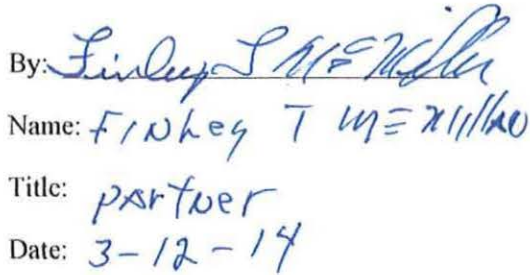 By: Finley T McMillan
Name: FINLEY T McMillan
Title: partner
Date: 3-12-14